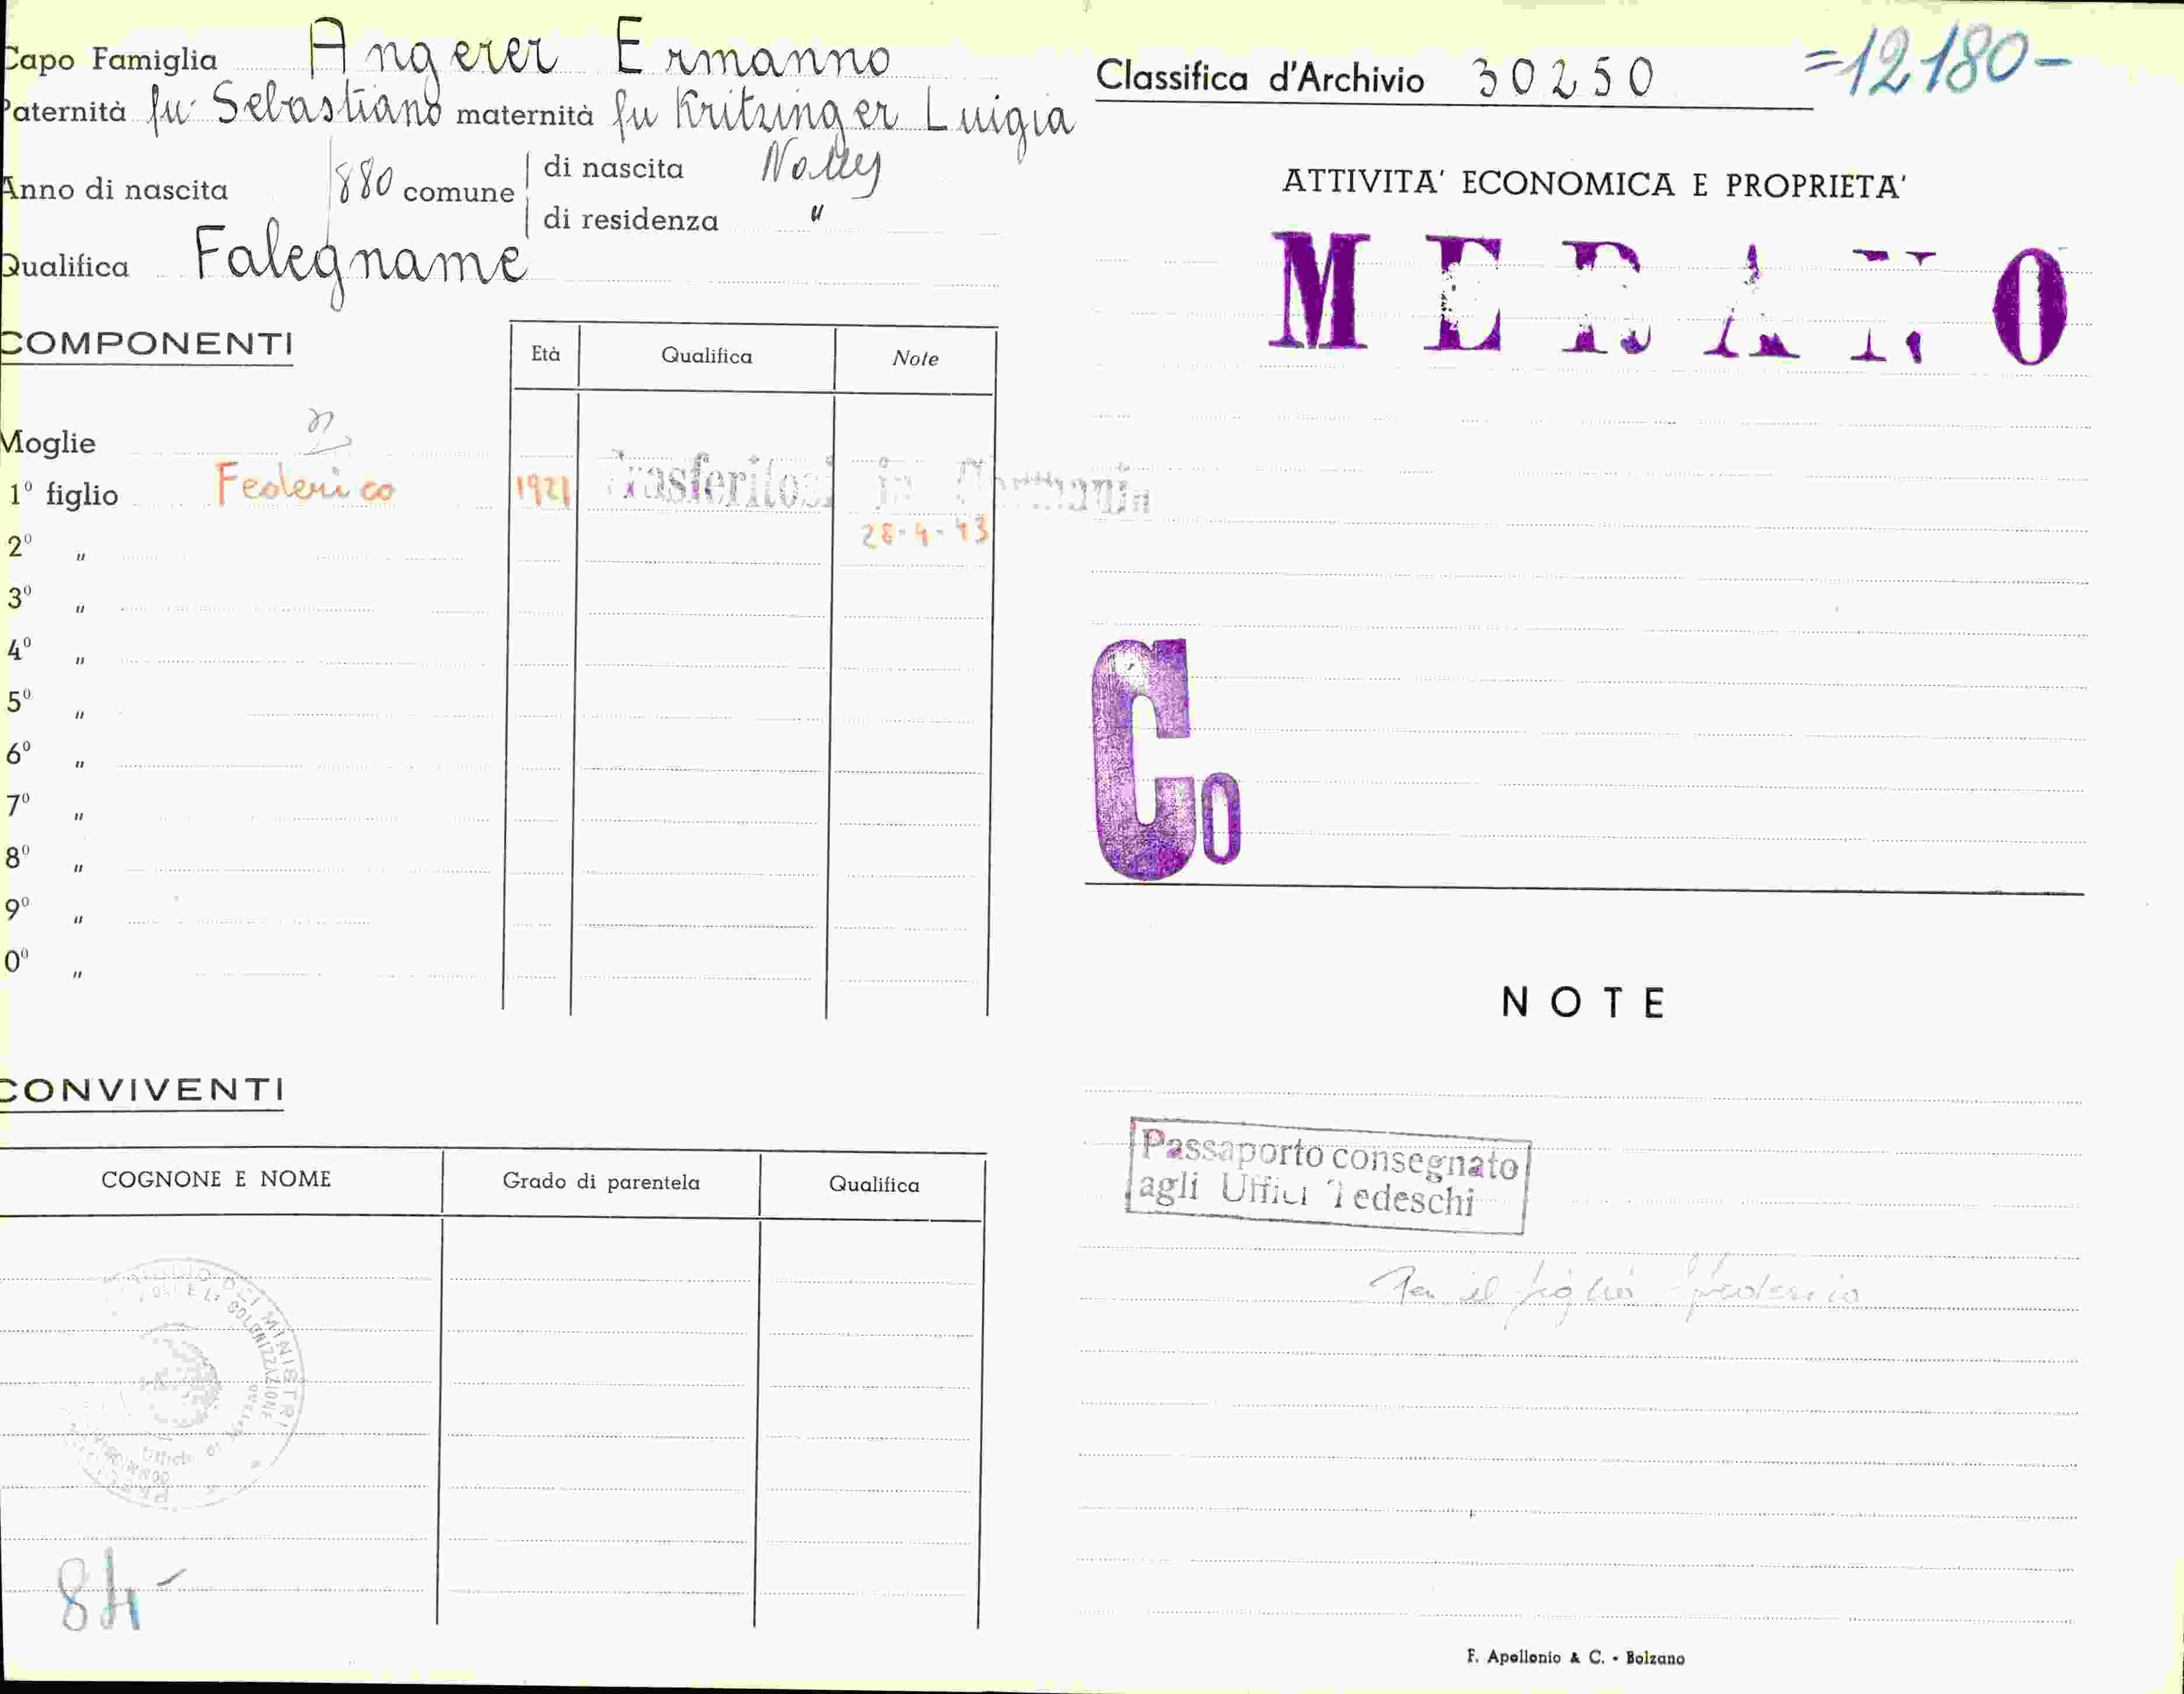 Capo Famiglia Angerer Ermanno
Paternità fu Sebastiano maternità fu Kritzinger Luigia
Anno di nascita 1880 comune di nascita Nalles
di residenza "
Qualifica Falegname
COMPONENTI
Età Qualifica Note
Moglie
1º figlio Federico 1921 Trasferitosi in Germania
28-4-43
2º "
3º "
4º "
5º "
6º "
7º "
8º "
9º "
0º "
CONVIVENTI
COGNONE E NOME Grado di parentela Qualifica
84-
Classifica d'Archivio 30250 =12180-
ATTIVITA' ECONOMICA E PROPRIETA'
MERANO
Co
NOTE
Passaporto consegnato
agli Uffici Tedeschi
Per il figlio Federico
F. Apollonio & C. - Bolzano